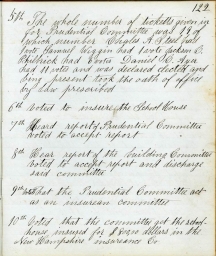 122
5th The whole number of tickets given in
for Prudential Committee was 19 of
which number Charles A. had
vote had 1 vote
had votes Daniel W. Ayer
had 11 votes and was declared elected and
being present took the oath of office
by law prescribed
6th Voted to insure the School House
7th Heard report of Prudential Committee
voted to accept report
8th Hear report of the building Committee
voted to accept report and discharge
said committee
9th that the Prudential Committee act
as an insurean committee
10th Voted that the committee get the school
house insured for dollars in the
New Hampshire insurance Co